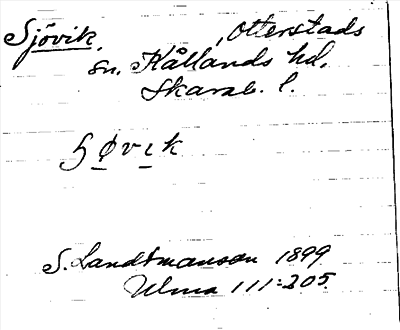 Sjövik, Otterstads
sn. Kållands hd,
Skarab. l.
S. Landtmanson 1899
Ulma 111:205.